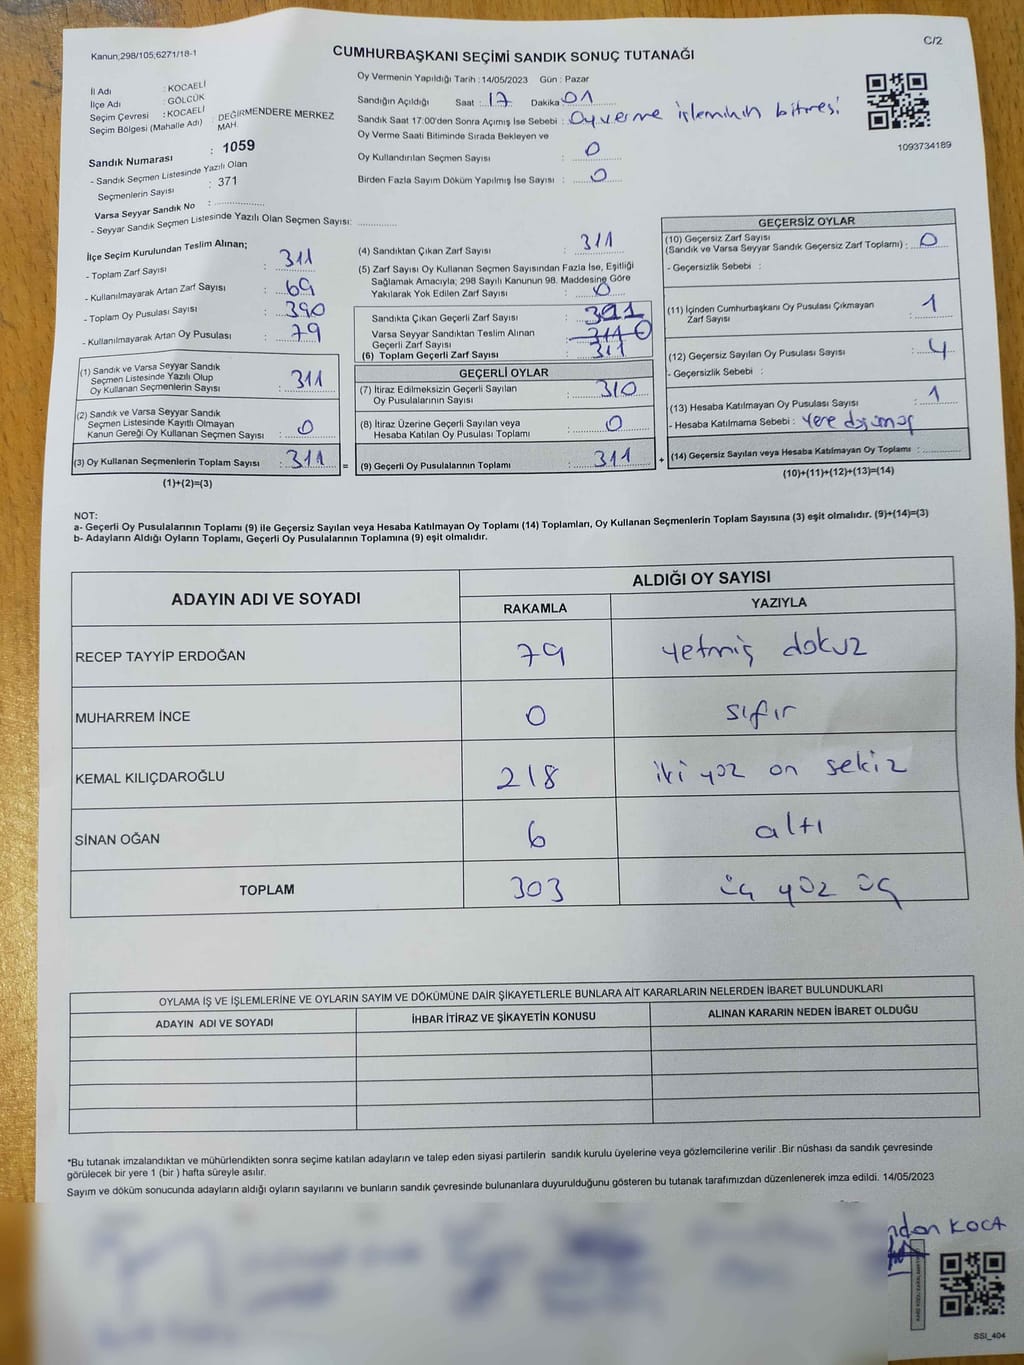 Kanun;298/105;6271/18-1
C/2
CUMHURBAŞKANI SEÇİMİ SANDIK SONUÇ TUTANAĞI
İl Adı : KOCAELİ
İlçe Adı : GÖLCÜK
Seçim Çevresi : KOCAELİ
Seçim Bölgesi (Mahalle Adı) : DEĞİRMENDERE MERKEZ MAH.
Sandık Numarası : 1059
- Sandık Seçmen Listesinde Yazılı Olan
Seçmenlerin Sayısı : 371
Varsa Seyyar Sandık No :
- Seyyar Sandık Seçmen Listesinde Yazılı Olan Seçmen Sayısı:
Oy Vermenin Yapıldığı Tarih : 14/05/2023 Gün : Pazar
Sandığın Açıldığı Saat : 17 Dakika 01
Sandık Saat 17:00'den Sonra Açımış İse Sebebi : Oy verme işleminin bitmesi
Oy Verme Saati Bitiminde Sırada Bekleyen ve
Oy Kullandırılan Seçmen Sayısı : 0
Birden Fazla Sayım Döküm Yapılmış İse Sayısı : 0
1093734189
İlçe Seçim Kurulundan Teslim Alınan;
- Toplam Zarf Sayısı : 311
- Kullanılmayarak Artan Zarf Sayısı : 69
- Toplam Oy Pusulası Sayısı : 390
- Kullanılmayarak Artan Oy Pusulası : 79
(1) Sandık ve Varsa Seyyar Sandık
Seçmen Listesinde Yazılı Olup
Oy Kullanan Seçmenlerin Sayısı : 311
(2) Sandık ve Varsa Seyyar Sandık
Seçmen Listesinde Kayıtlı Olmayan
Kanun Gereği Oy Kullanan Seçmen Sayısı : 0
(3) Oy Kullanan Seçmenlerin Toplam Sayısı : 311
(1)+(2)=(3)
=
(4) Sandıktan Çıkan Zarf Sayısı : 311
(5) Zarf Sayısı Oy Kullanan Seçmen Sayısından Fazla İse, Eşitliği
Sağlamak Amacıyla; 298 Sayılı Kanunun 98. Maddesine Göre
Yakılarak Yok Edilen Zarf Sayısı : 0
Sandıkta Çıkan Geçerli Zarf Sayısı : 311
Varsa Seyyar Sandıktan Teslim Alınan
Geçerli Zarf Sayısı : 311 0
(6) Toplam Geçerli Zarf Sayısı : 311
GEÇERLİ OYLAR
(7) İtiraz Edilmeksizin Geçerli Sayılan
Oy Pusulalarının Sayısı : 310
(8) İtiraz Üzerine Geçerli Sayılan veya
Hesaba Katılan Oy Pusulası Toplamı : 0
(9) Geçerli Oy Pusulalarının Toplamı : 311
+
GEÇERSİZ OYLAR
(10) Geçersiz Zarf Sayısı
(Sandık ve Varsa Seyyar Sandık Geçersiz Zarf Toplamı) : 0
- Geçersizlik Sebebi :
(11) İçinden Cumhurbaşkanı Oy Pusulası Çıkmayan
Zarf Sayısı : 1
(12) Geçersiz Sayılan Oy Pusulası Sayısı : 4
- Geçersizlik Sebebi :
(13) Hesaba Katılmayan Oy Pusulası Sayısı : 1
- Hesaba Katılmama Sebebi : Yere
(14) Geçersiz Sayılan veya Hesaba Katılmayan Oy Toplamı :
(10)+(11)+(12)+(13)=(14)
NOT:
a- Geçerli Oy Pusulalarının Toplamı (9) ile Geçersiz Sayılan veya Hesaba Katılmayan Oy Toplamı (14) Toplamları, Oy Kullanan Seçmenlerin Toplam Sayısına (3) eşit olmalıdır. (9)+(14)=(3)
b- Adayların Aldığı Oyların Toplamı, Geçerli Oy Pusulalarının Toplamına (9) eşit olmalıdır.
ADAYIN ADI VE SOYADI ALDIĞI OY SAYISI
RAKAMLA YAZIYLA
RECEP TAYYİP ERDOĞAN 79 yetmiş dokuz
MUHARREM İNCE 0 sıfır
KEMAL KILIÇDAROĞLU 218 iki yüz on sekiz
SİNAN OĞAN 6 altı
TOPLAM 303 üç yüz üç
OYLAMA İŞ VE İŞLEMLERİNE VE OYLARIN SAYIM VE DÖKÜMÜNE DAİR ŞİKAYETLERLE BUNLARA AİT KARARLARIN NELERDEN İBARET BULUNDUKLARI
ADAYIN ADI VE SOYADI İHBAR İTİRAZ VE ŞİKAYETİN KONUSU ALINAN KARARIN NEDEN İBARET OLDUĞU
*Bu tutanak imzalandıktan ve mühürlendikten sonra seçime katılan adayların ve talep eden siyasi partilerin sandık kurulu üyelerine veya gözlemcilerine verilir .Bir nüshası da sandık çevresinde
görülecek bir yere 1 (bir ) hafta süreyle asılır.
Sayım ve döküm sonucunda adayların aldığı oyların sayılarını ve bunların sandık çevresinde bulunanlara duyurulduğunu gösteren bu tutanak tarafımızdan düzenlenerek imza edildi. 14/05/2023
ndan KOCA
SSI_404